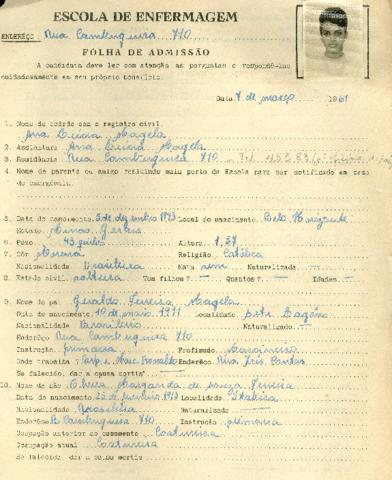 ESCOLA DE ENFERMAGEM
ENDERÊÇO: Rua Cambuquira 710
FÔLHA DE ADMISSÃO
A candidata deve ler com atenção as perguntas e respondê-las
cuidadosamente em seu próprio benefício.
Data 7 de março 1961
1. Nome de acôrdo com o registro civil.
Ana Lúcia Magela
2. Assinatura Ana Lúcia Magela
3. Residência Rua Cambuquira 710
4. Nome de parente ou amigo residindo mais perto da Escola para ser notificado em caso
de emergência.
5. Data do nascimento 3 de dezembro 1943 Local do nascimento Belo Horizonte
Estado Minas Gerais
6. Pêso 43 quilos Altura 1,57
7. Côr Morena Religião Católica
Nacionalidade Brasileira Nata sim Naturalizada
8. Estado civil solteira Tem filhos? Quantos? Idades
9. Nome do pai Geraldo Ferreira Magela
Data do nascimento 10 de maio 1911 Localidade Sete Lagôas
Nacionalidade Brasileiro Naturalizado
Enderêço Rua Cambuquira 710
Instrução primária Profissão Marceneiro
Onde trabalha Enderêço Rua
Se falecido, dar a causa mortis
10. Nome da mãe Margarida de Souza Ferreira
Data do nascimento Localidade Itabira
Nacionalidade Brasileira Naturalizada
Enderêço R. Cambuquira 710 Instrução primária
Ocupação anterior ao casamento Costureira
Ocupação atual Costureira
Se falecida dar a causa mortis